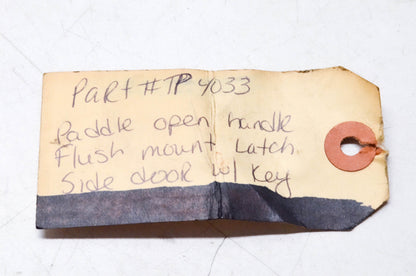 Part # TP 4033
Paddle open handle
Flush mount Latch.
Side door w/ key